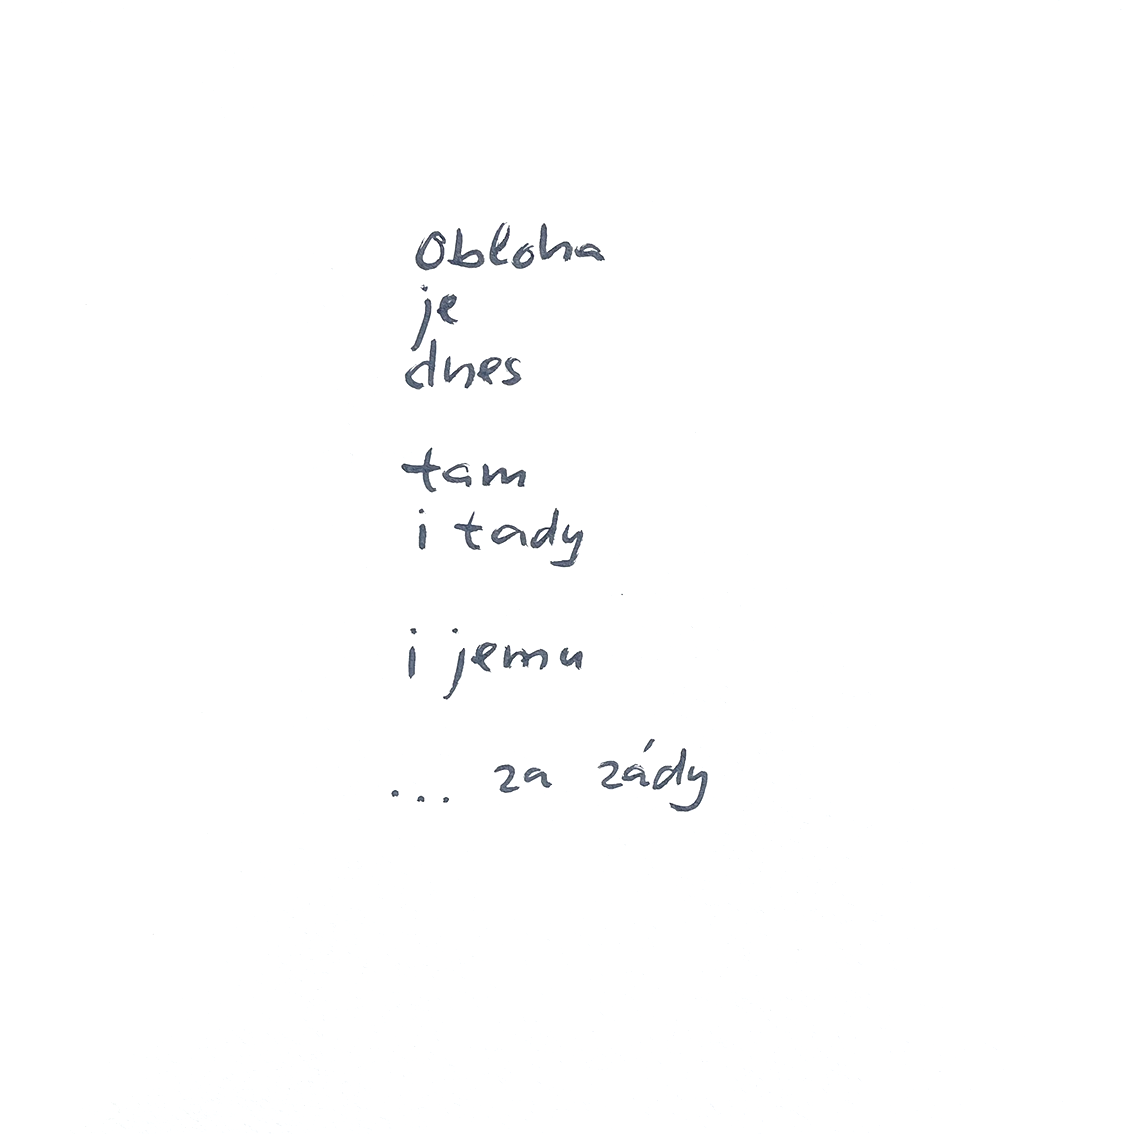 Obloha
je
dnes
tam
i tady
i jemu
... za zády